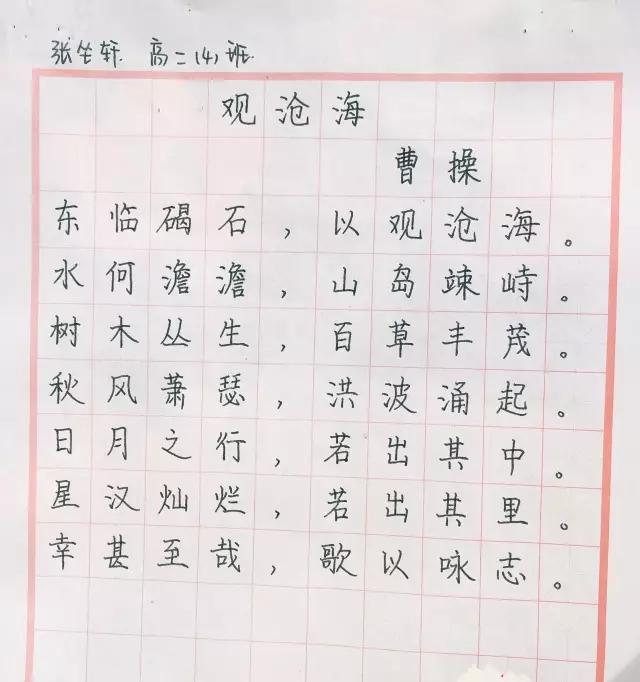 张笙轩 高二(4)班
观沧海
曹操
东临碣石，以观沧海。
水何澹澹，山岛竦峙。
树木丛生，百草丰茂。
秋风萧瑟，洪波涌起。
日月之行，若出其中。
星汉灿烂，若出其里。
幸甚至哉，歌以咏志。